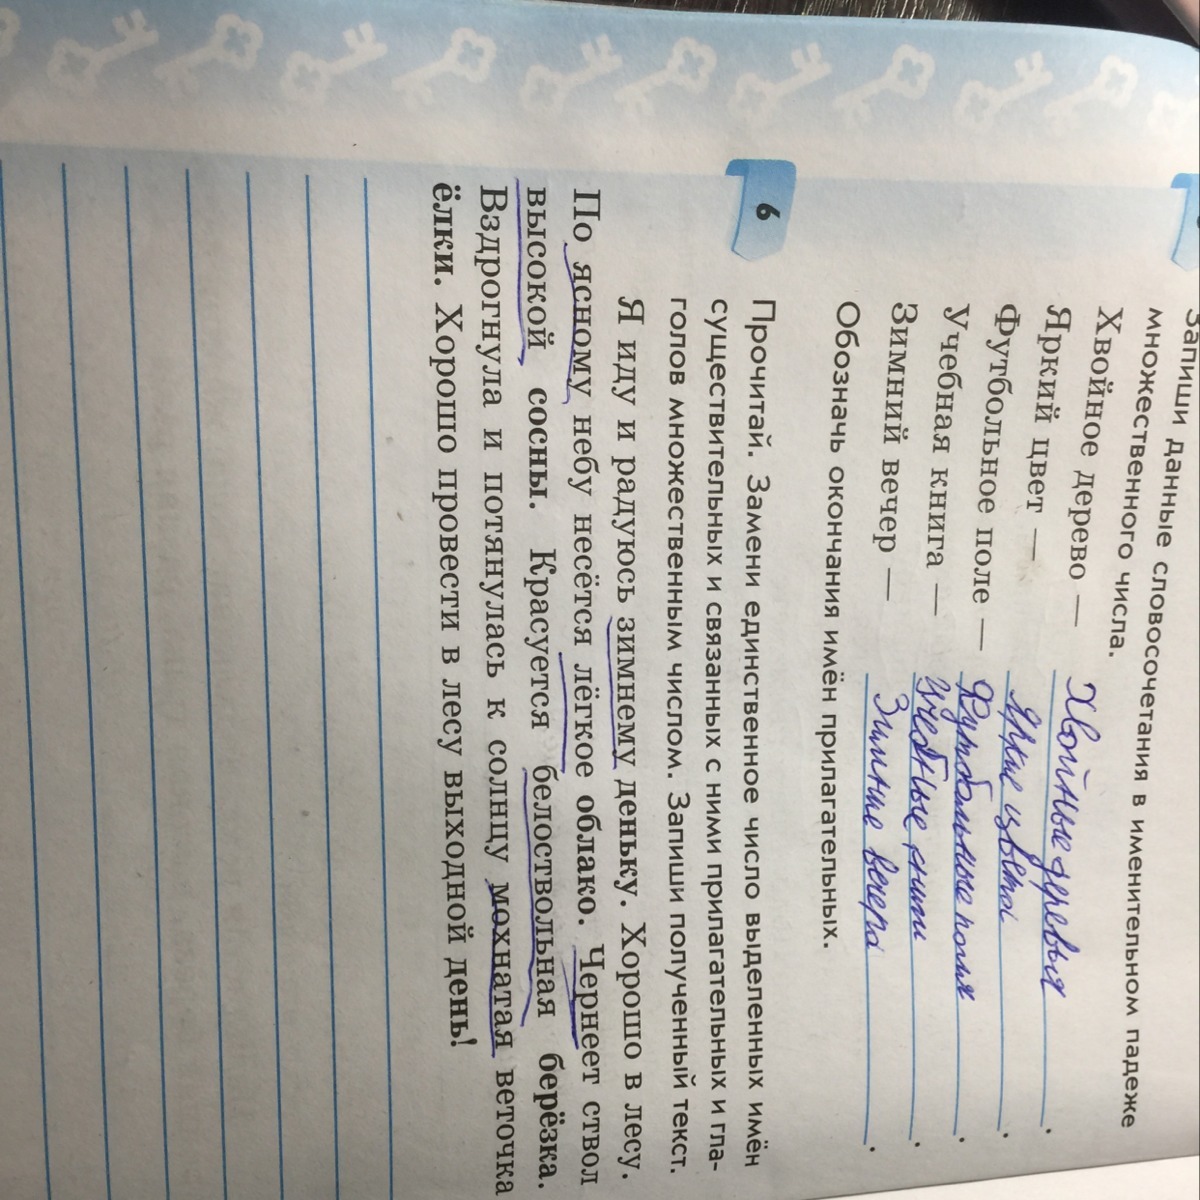 Запиши данные словосочетания в именительном падеже
множественного числа.
Хвойное дерево — Хвойные деревья.
Яркий цвет — Яркие цвета.
Футбольное поле — Футбольные поля.
Учебная книга — Учебные книги.
Зимний вечер — Зимние вечера.
Обозначь окончания имён прилагательных.
6
Прочитай. Замени единственное число выделенных имён
существительных и связанных с ними прилагательных и гла-
голов множественным числом. Запиши полученный текст.
Я иду и радуюсь зимнему деньку. Хорошо в лесу.
По ясному небу несётся лёгкое облако. Чернеет ствол
высокой сосны. Красуется белоствольная берёзка.
Вздрогнула и потянулась к солнцу мохнатая веточка
ёлки. Хорошо провести в лесу выходной день!